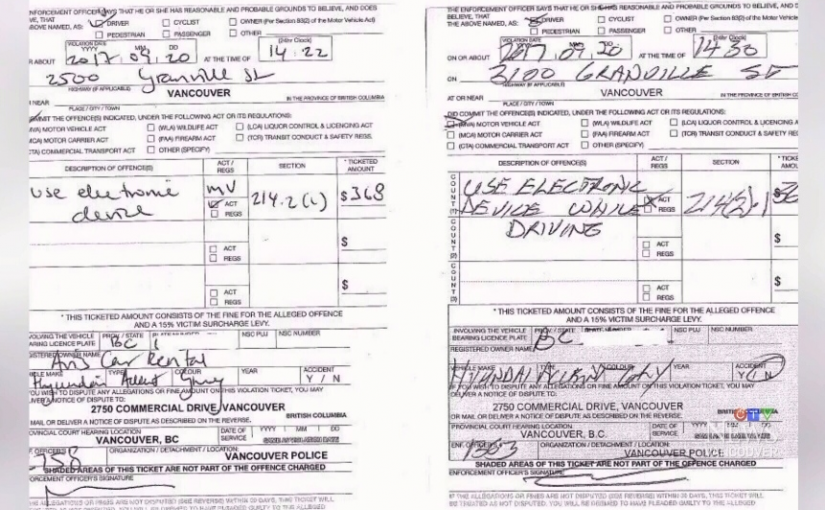 ENFORCEMENT OFFICER SAYS THAT HE OR SHE HAS REASONABLE AND PROBABLE GROUNDS TO BELIEVE, AND DOES
VE, THAT
ABOVE NAMED, AS:
DRIVER
CYCLIST
OWNER (Per Section 83(2) of the Motor Vehicle Act)
PEDESTRIAN
PASSENGER
OTHER
VIOLATION DATE
YYYY MM DD
(24hr Clock)
R ABOUT 2017 09 20 AT THE TIME OF 14:22
2500 Granville St
HIGHWAY (IF APPLICABLE)
VANCOUVER
R NEAR
IN THE PROVINCE OF BRITISH COLUMBIA
PLACE / CITY / TOWN
MMIT THE OFFENCE(S) INDICATED, UNDER THE FOLLOWING ACT OR ITS REGULATIONS:
(MVA) MOTOR VEHICLE ACT (WLA) WILDLIFE ACT (LCA) LIQUOR CONTROL & LICENCING ACT
(MCA) MOTOR CARRIER ACT (FAA) FIREARM ACT (TCR) TRANSIT CONDUCT & SAFETY REGS.
(CTA) COMMERCIAL TRANSPORT ACT OTHER (SPECIFY)
DESCRIPTION OF OFFENCE(S) ACT / REGS SECTION * TICKETED AMOUNT
use electronic device MV ACT REGS 214.2(1) $368
ACT REGS $
ACT REGS $
* THIS TICKETED AMOUNT CONSISTS OF THE FINE FOR THE ALLEGED OFFENCE
AND A 15% VICTIM SURCHARGE LEVY.
VOLVING THE VEHICLE PROV / STATE NSC PLU NSC NUMBER
EARING LICENCE PLATE BC
GISTERED OWNER NAME
Car Rental
HICLE MAKE TYPE COLOUR YEAR ACCIDENT
Hyundai Accent Grey Y / N
YOU WISH TO DISPUTE ANY ALLEGATIONS OR FINE AMOUNT ON THIS VIOLATION TICKET, YOU MAY
LIVER A NOTICE OF DISPUTE TO:
2750 COMMERCIAL DRIVE, VANCOUVER
BRITISH COLUMBIA
MAIL OR DELIVER A NOTICE OF DISPUTE AS DESCRIBED ON THE REVERSE.
OVINCIAL COURT HEARING LOCATION DATE OF SERVICE YYYY MM DD
VANCOUVER, BC
ORGANIZATION / DETACHMENT / LOCATION
VANCOUVER POLICE
SHADED AREAS OF THIS TICKET ARE NOT PART OF THE OFFENCE CHARGED
ORCEMENT OFFICER'S SIGNATURE
THE ENFORCEMENT OFFICER SAYS THAT HE OR SHE HAS REASONABLE AND PROBABLE GROUNDS TO BELIEVE, AND
BELIEVE, THAT
THE ABOVE NAMED, AS:
DRIVER
CYCLIST
OWNER (Per Section 83(2) of the Motor Vehicle
PEDESTRIAN
PASSENGER
OTHER
VIOLATION DATE
YYYY MM DD
(24hr Clock)
ON OR ABOUT 2017 09 20 AT THE TIME OF 1430
ON 2100 GRANVILLE ST
HIGHWAY (IF APPLICABLE)
VANCOUVER
AT OR NEAR
IN THE PROVINCE OF BRITISH CO
PLACE / CITY / TOWN
DID COMMIT THE OFFENCE(S) INDICATED, UNDER THE FOLLOWING ACT OR ITS REGULATIONS:
(MVA) MOTOR VEHICLE ACT (WLA) WILDLIFE ACT (LCA) LIQUOR CONTROL & LICENCING A
(MCA) MOTOR CARRIER ACT (FAA) FIREARM ACT (TCR) TRANSIT CONDUCT & SAFETY RE
(CTA) COMMERCIAL TRANSPORT ACT OTHER (SPECIFY)
DESCRIPTION OF OFFENCE(S) ACT / REGS SECTION * TICKE AMOUNT
COUNT (1) USE ELECTRONIC DEVICE WHILE DRIVING ACT REGS 214(2)-1 $36
COUNT (2) ACT REGS $
COUNT (3) ACT REGS $
* THIS TICKETED AMOUNT CONSISTS OF THE FINE FOR THE ALLEGED OFFENCE
AND A 15% VICTIM SURCHARGE LEVY.
INVOLVING THE VEHICLE PROV / STATE NSC PLU NSC NUMBER
BEARING LICENCE PLATE BC
REGISTERED OWNER NAME
VEHICLE MAKE COLOUR YEAR ACCIDENT
HYUNDAI Y / N
IF YOU WISH TO DISPUTE ANY ALLEGATIONS OR FINE AMOUNT ON THIS VIOLATION TICKET, YOU MAY
DELIVER A NOTICE OF DISPUTE TO:
2750 COMMERCIAL DRIVE, VANCOUVER
OR MAIL OR DELIVER A NOTICE OF DISPUTE AS DESCRIBED ON THE REVERSE.
PROVINCIAL COURT HEARING LOCATION DATE OF SERVICE
VANCOUVER, B.C.
ORGANIZATION / DETACHMENT / LOCATION
1303 VANCOUVER POLICE
CTV
VANCOUVER
SHADED AREAS OF THIS TICKET ARE NOT PART OF THE OFFENCE CHARGED
ENFORCEMENT OFFICER'S SIGNATURE